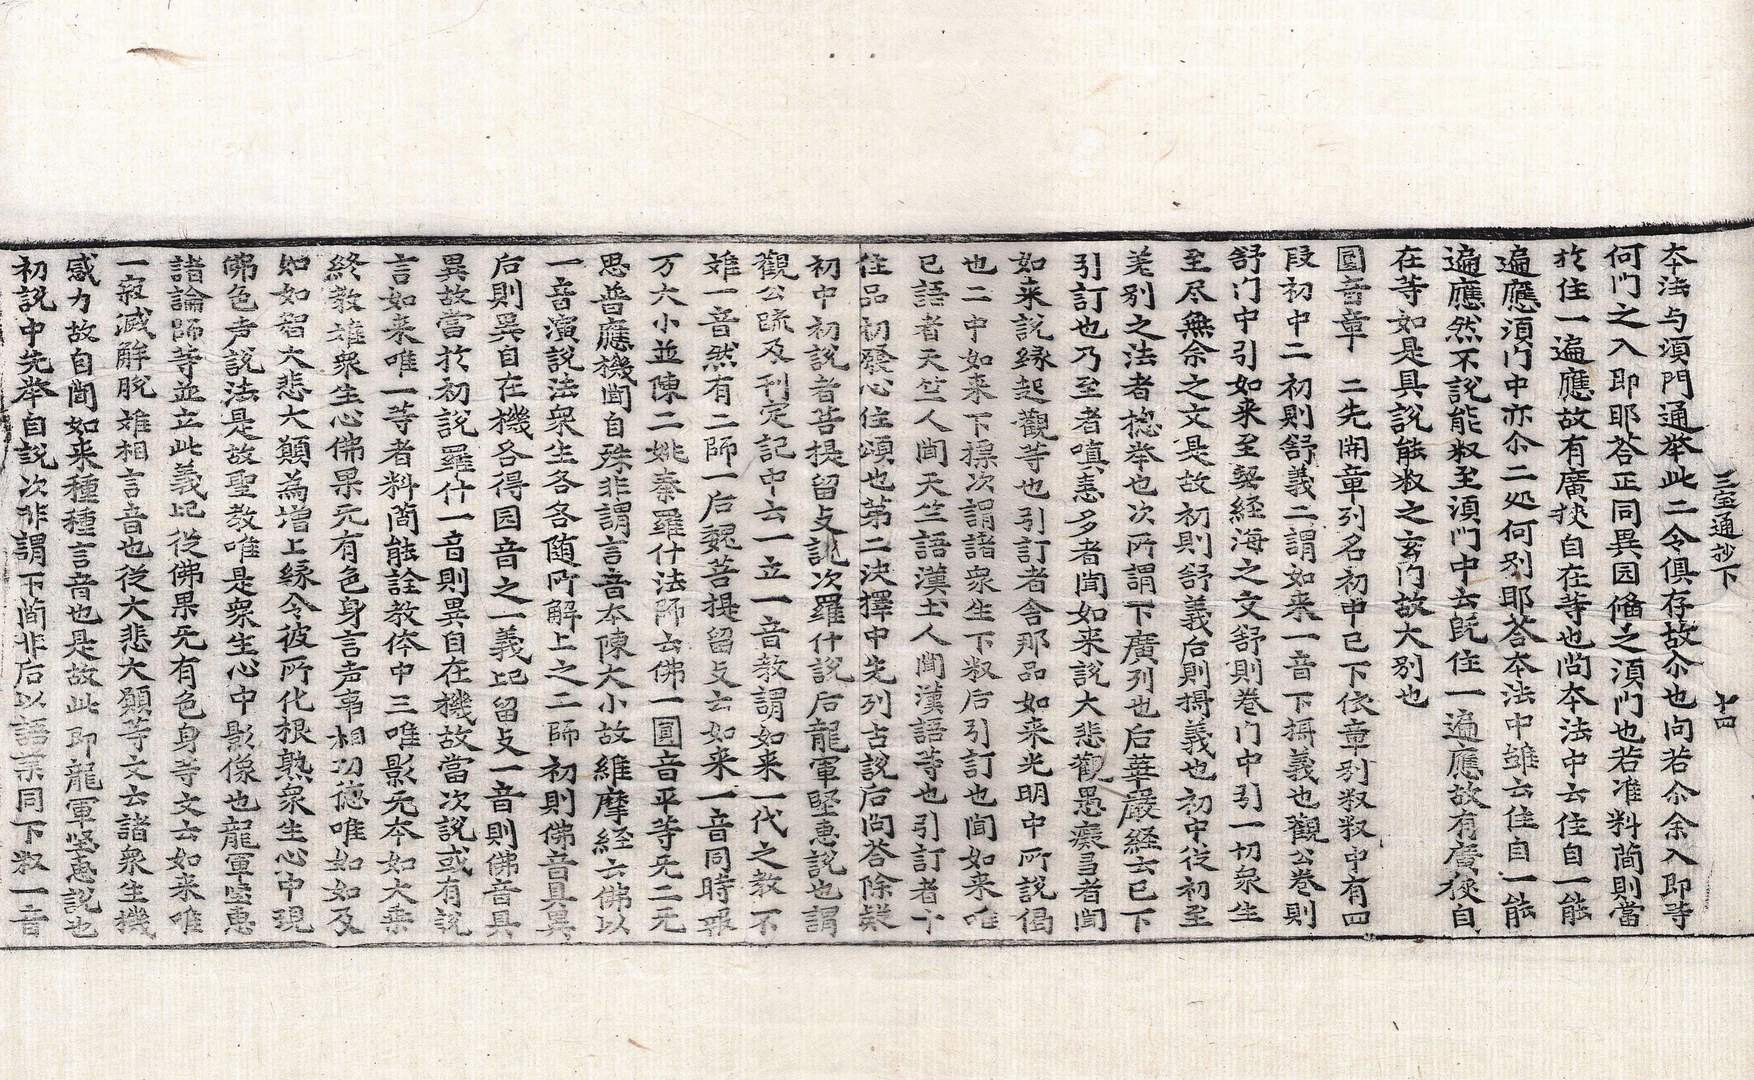 三宝通抄下
十四
本法与須門通举此二令俱存故尒也问若尒余入即等
何门之入即耶荅正同異园俻之須门也若准料简則當
扵住一遍應故有廣挟自在等也问本法中云住自一能
遍應須门中亦尒二処何别耶荅本法中虽云住自一能
遍應然不說能収至須門中云旣住一遍應故有廣挾自
在等如是具說能収之玄门故大别也
圓音章　二先開章列名初中已下依章别叙叙中有四
段初中二初則舒義二謂如来一音下攝義也觀公卷則
舒门中引如来至契経海之文舒則卷门中引一切衆生
至尽無余之文是故初則舒義后則攝義也初中從初至
差别之法者摠举也次所謂下廣列也后華嚴経云已下
引訂也乃至者嗔恚多者闻如来說大悲觀愚癡多者闻
如来說縁起觀等也引訂者舍那品如来光明中所說偈
也二中如来下摽次謂諸衆生下叙后引訂也闻如来唯
已語者天竺人闻天竺語漢土人闻漢語等也引訂者十
住品初發心住頌也第二决擇中先列古說后问荅除疑
初中初說者菩提留支說次羅什說后龍軍堅恵說也謂
觀公䟽及刊定記中云一立一音教謂如来一代之教不
雖一音然有二師一后魏菩提留支云如来一音同時報
万大小並陳二姚秦羅什法師云佛一圓音平等无二无
思普應機闻自殊非謂言音本陳大小故維摩経云佛以
一音演說法衆生各各随所解上之二師初則佛音具異
后則異自在機各得园音之一義也留支一音則佛音具
異故當扵初說羅什一音則異自在機故當次說或有說
言如来唯一等者料简能詮教体中三唯影无本如大乘
終教雖衆生心佛果无有色身言声事相功德唯如如及
如如智大悲大願為增上縁令彼所化根熟衆生心中現
佛色声說法是故聖教唯是衆生心中影像也龍軍堅恵
諸論師等並立此義也從佛果无有色身等文云如来唯
一寂滅解脫雖相言音也從大悲大願等文云諸衆生機
感力故自闻如来種種言音也是故此即龍軍坚恵說也
初說中先举自說次非謂下简非后以語業同下叙一音